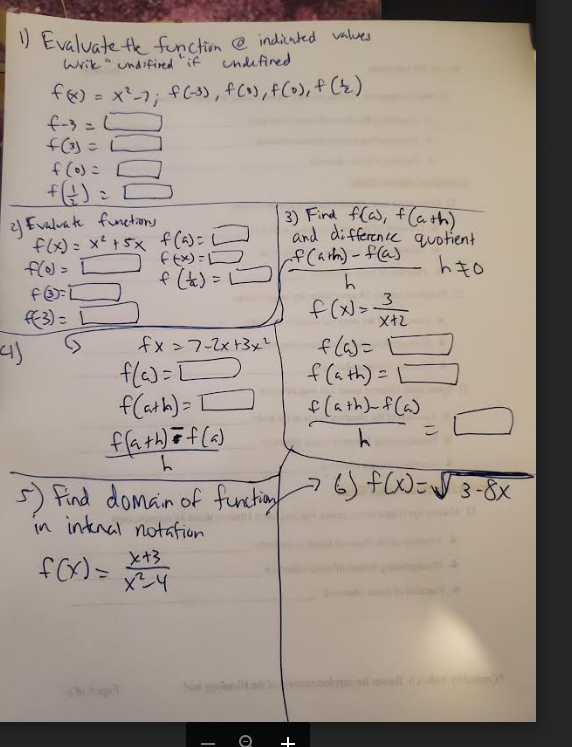 1) Evaluate the function @ indicated values
write "undifired" if undefined
f(x) = x²-7; f(-3), f(3), f(0), f(½)
f-3 =
f(3) =
f(0) =
f(½) =
2) Evaluate functions
f(x) = x² + 5x f(a) =
f(0) = f(-x) =
f(3) =
f(-3) =
3) Find f(a), f(a+h)
and difference quotient
f(a+h) - f(a) / h h≠0
f(x) = 3 / x+2
f(a) =
f(a+h) =
f(a+h) - f(a) / h =
4)
fx = 7-2x+3x²
f(a) =
f(a+h) =
f(a+h) - f(a) / h
5) Find domain of function
in interval notation
f(x) = x+3 / x²-4
6) f(x) = √3-8x